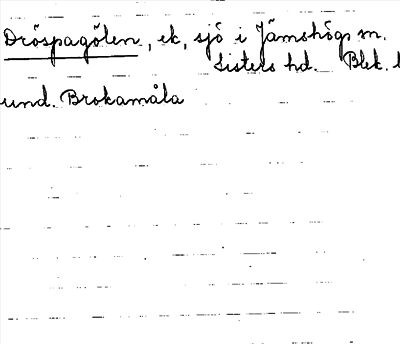 Dröspagölen, ek, sjö i Jämshögs sn.
Listers hd. Blek. l
und. Brokamåla